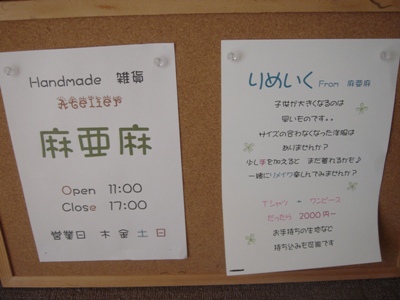 Handmade 雑貨
Atelier
麻亜麻
Open 11:00
Close 17:00
営業日 木 金 土 日
りめいく From 麻亜麻
子供が大きくなるのは
早いものです。。
サイズの合わなくなった洋服は
ありませんか?
少し手を加えると まだ着れるかも♪
一緒にリメイク楽しんでみませんか?
Tシャツ → ワンピース
だったら 2000円~
お手持ちの生地など
持ち込みも可能です